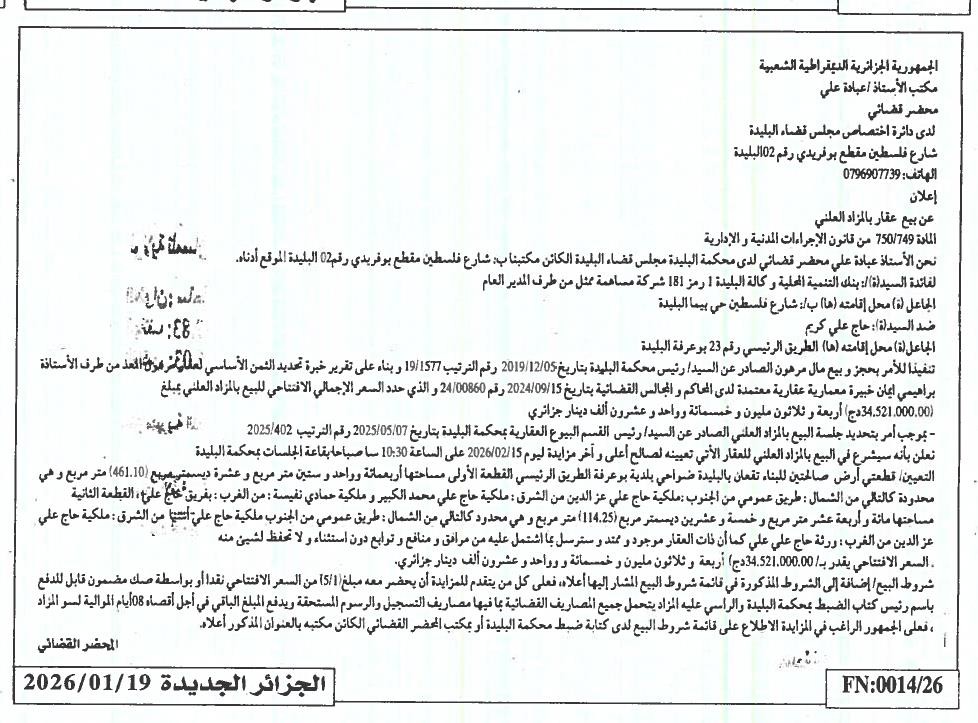 الجمهورية الجزائرية الديمقراطية الشعبية
مكتب الأستاذ /عبادة علي
محضر قضائي
لدى دائرة اختصاص مجلس قضاء البليدة
شارع فلسطين مقطع بوفريدي رقم 02البليدة
الهاتف: 0796907739
إعلان
عن بيع عقار بالمزاد العلني
المادة 750/749 من قانون الإجراءات المدنية و الإدارية
نحن الأستاذ عبادة علي محضر قضائي لدى محكمة البليدة مجلس قضاء البليدة الكائن مكتبنا ب: شارع فلسطين مقطع بوفريدي رقم02 البليدة الموقع أدناه.
لفائدة السيد(ة)/: بنك التنمية المحلية و كالة البليدة 1 رمز 181 شركة مساهمة ممثل من طرف المدير العام
الجاعل(ة) محل إقامته (ها) ب/: شارع فلسطين حي بيما البليدة
ضد السيد(ة): حاج علي كريم
الجاعل(ة) محل إقامته (ها) الطريق الرئيسي رقم 23 بوعرفة البليدة
تنفيذا للأمر بحجز و بيع مال مرهون الصادر عن السيد/ رئيس محكمة البليدة بتاريخ 2019/12/05 رقم الترتيب 19/1577 و بناء على تقرير خبرة تحديد الثمن الأساسي المعد من طرف الأستاذة
براهيمي إيمان خبيرة معمارية عقارية معتمدة لدى المحاكم و المجالس القضائية بتاريخ 2024/09/15 رقم 24/00860 و الذي حدد السعر الإجمالي الافتتاحي للبيع بالمزاد العلني بمبلغ
(34.521.000.00دج) أربعة و ثلاثون مليون و خمسمائة وواحد و عشرون ألف دينار جزائري
– بموجب أمر بتحديد جلسة البيع بالمزاد العلني الصادر عن السيد/ رئيس القسم البيوع العقارية بمحكمة البليدة بتاريخ 2025/05/07 رقم الترتيب 2025/402
نعلن بأنه سيشرع في البيع بالمزاد العلني للعقار الأتي تعيينه لصالح أعلى و أخر مزايدة ليوم 2026/02/15 على الساعة 10:30 سا صباحا بقاعة الجلسات بمحكمة البليدة
التعيين/ قطعتي أرض صالحتين للبناء تقعان بالبليدة ضواحي بلدية بوعرفة الطريق الرئيسي القطعة الأولى مساحتها أربعمائة وواحد و ستين متر مربع و عشرة ديسمتر مربع (461.10) متر مربع و هي
محدودة كالتالي من الشمال : طريق عمومي من الجنوب :ملكية حاج علي عز الدين من الشرق : ملكية حاج علي محمد الكبير و ملكية حمادي نفيسة : من الغرب : بفريق حاج علي ، القطعة الثانية
مساحتها مائة و أربعة عشر متر مربع و خمسة و عشرين ديسمتر مربع (114.25) متر مربع و هي محدود كالتالي من الشمال : طريق عمومي من الجنوب ملكية حاج علي من الشرق : ملكية حاج علي
عز الدين من الغرب : ورثة حاج علي علي كما أن ذات العقار موجود و ممتد و سترسل بما اشتمل عليه من مرافق و منافع و توابع دون استثناء و لا تحفظ لشيئ منه
. السعر الافتتاحي يقدر بـ/ 34.521.000.00دج) أربعة و ثلاثون مليون و خمسمائة و واحد و عشرون ألف دينار جزائري.
شروط البيع/ إضافة إلى الشروط المذكورة في قائمة شروط البيع المشار إليها أعلاه، فعلى كل من يتقدم للمزايدة أن يحضر معه مبلغ(5/1) من السعر الافتتاحي نقدا أو بواسطة صك مضمون قابل للدفع
باسم رئيس كتاب الضبط بمحكمة البليدة والراسي عليه المزاد يتحمل جميع المصاريف القضائية بما فيها مصاريف التسجيل والرسوم المستحقة ويدفع المبلغ الباقي في أجل أقصاه 08أيام الموالية لسو المزاد
، فعلى الجمهور الراغب في المزايدة الاطلاع على قائمة شروط البيع لدى كتابة ضبط محكمة البليدة أو بمكتب المحضر القضائي الكائن مكتبه بالعنوان المذكور أعلاه.
المحضر القضائي
الجزائر الجديدة 2026/01/19
FN:0014/26